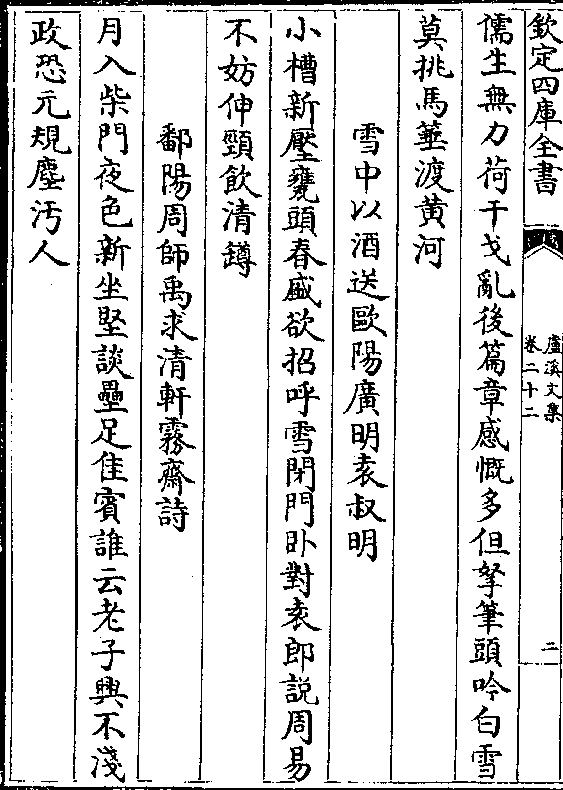 欽定四庫全書
盧溪文集
卷二十二
二
儒生無力荷干戈亂後篇章感慨多但拏筆頭吟白雪
莫挑馬箠渡黄河
雪中以酒送歐陽廣明袁叔明
小槽新壓甕頭春盛欲招呼雪閉門卧對袁郎説周易
不妨伸頸飲清罇
鄱陽周師禹求清軒霧齋詩
月入柴門夜色新坐堅談壘足佳賓誰云老子興不淺
政恐元規塵汚人